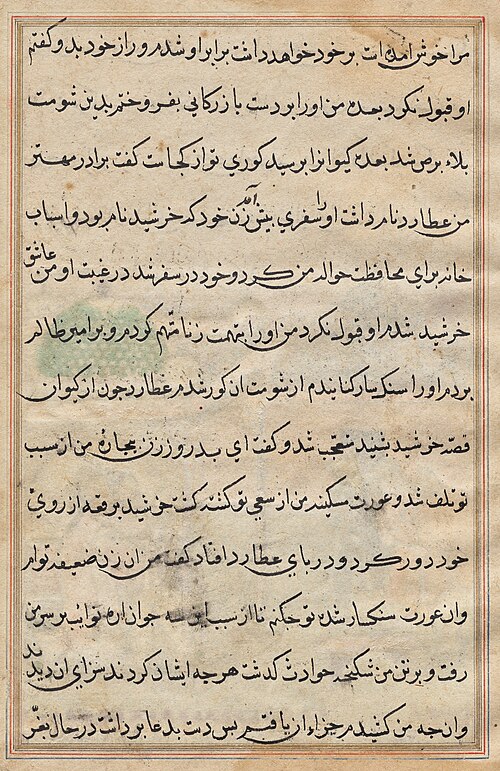 مرا خوش آمده است بر خود خواهد داشت برابر او شدم و راز خود بدو گفتم
او قبول نکرد بعده من او را بر دست بازرگانی بفروختم بدین شومت
بلاء برص شد بعده کیوانرا پرسید کوری تو از کجاست گفت برادر مهتر
من عطارد نام داشت او را سفری پیش آمد زن خود که خرشید نام بود و اسباب
خانه برای محافظت حواله من کرد و خود در سفر شد در غیبت او من عاشق
خرشید شدم او قبول نکرد من او را بتهمت زنا متهم کردم و بر امیر ظالم
بردم او را سنکسار کنانیدم از شومت آن کور شدم عطارد چون از کیوان
قصّه خرشید شنید متعجب شد و گفت ای بدروز زن بیچارهٔ من از سبب
تو تلف شد و عورت مسکینه من از سعی تو کشته کشت خرشید برقعه از روی
خود دور کرد و در پای عطارد افتاد گفت من آن زن ضعیفه توام
وآن عورت سنکسار شده تو حکم نا از سبب این سه جوان آره نوایب بر سر من
رفت و بر تن من شکنجه حوادث کذشت هر چه ایشان کردند سزای آن دیدند
وآنچه من کشیدم جزاء آن یافتم پس دست بدعا برداشت در حال بفر